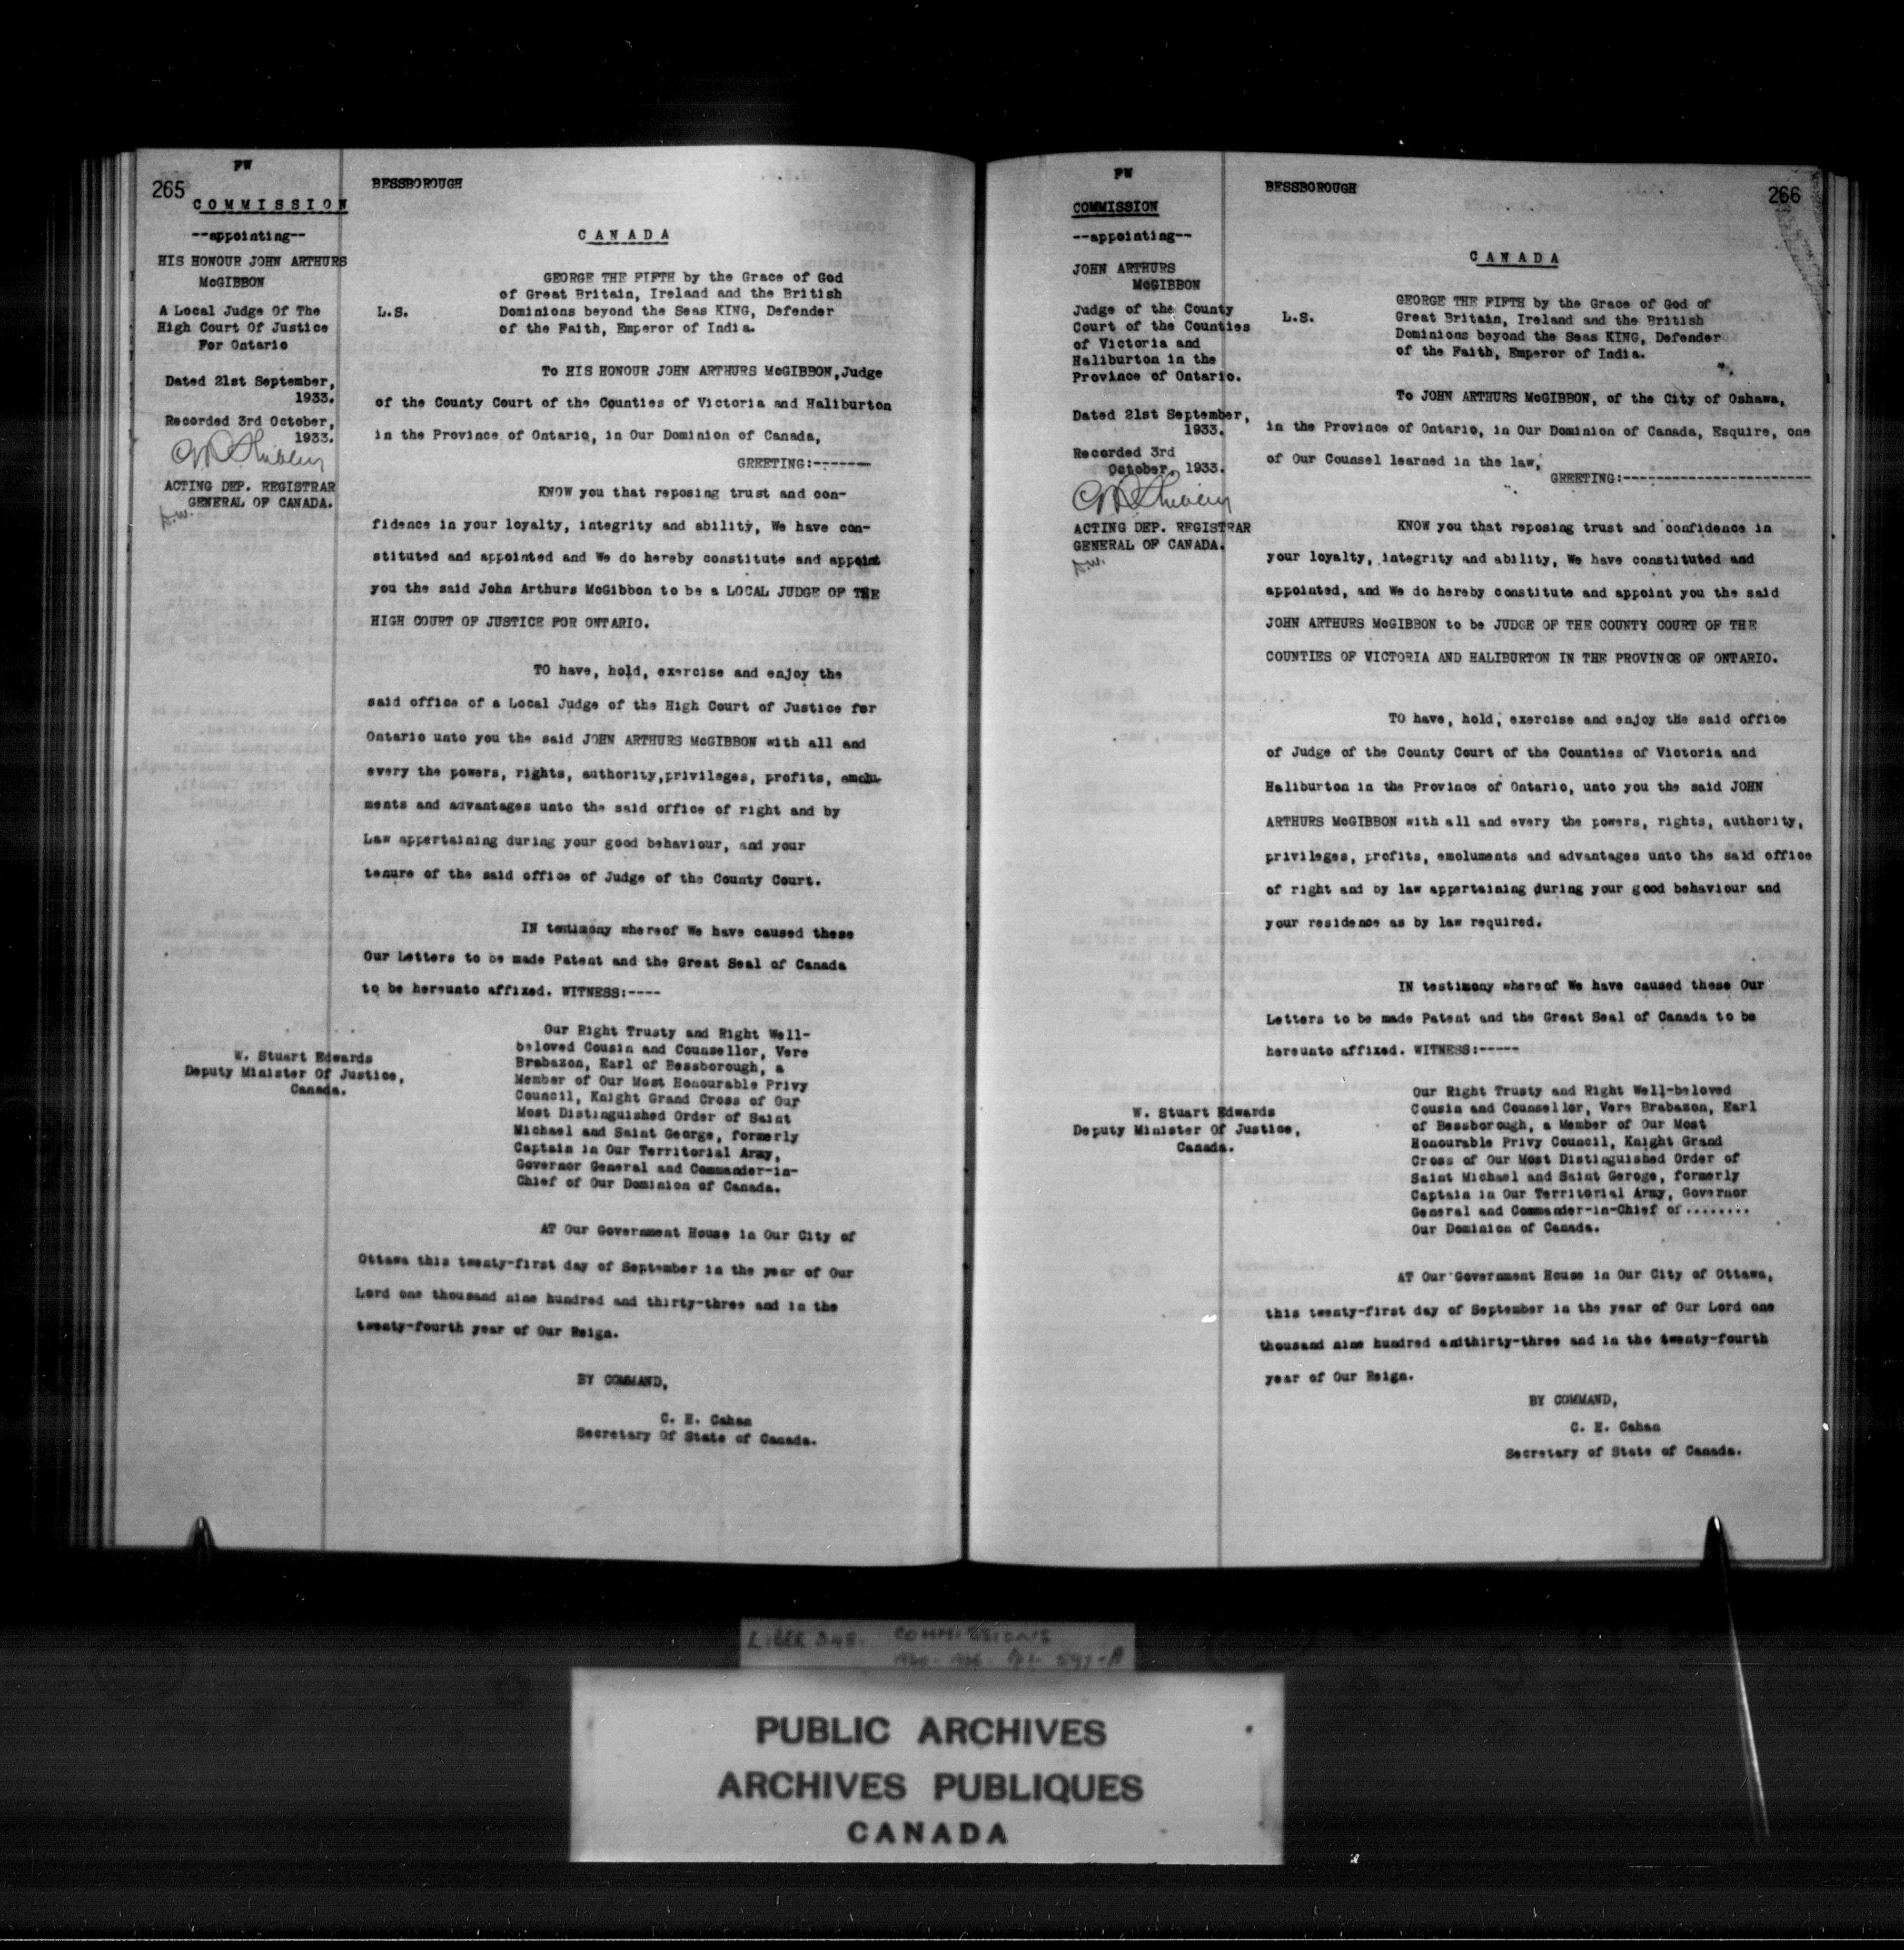 PW
265
COMMISSION
--appointing--
HIS HONOUR JOHN ARTHURS
McGIBBON
A Local Judge Of The
High Court Of Justice
For Ontario
Dated 21st September,
1933.
Recorded 3rd October,
1933.
ACTING DEP. REGISTRAR
GENERAL OF CANADA.
A.W.
W. Stuart Edwards
Deputy Minister Of Justice,
Canada.
BESSBOROUGH
CANADA
L.S.
GEORGE THE FIFTH by the Grace of God
of Great Britain, Ireland and the British
Dominions beyond the Seas KING, Defender
of the Faith, Emperor of India.
To HIS HONOUR JOHN ARTHURS McGIBBON,Judge
of the County Court of the Counties of Victoria and Haliburton
in the Province of Ontario, in Our Dominion of Canada,
GREETING:-------
KNOW you that reposing trust and con-
fidence in your loyalty, integrity and ability, We have con-
stituted and appointed and We do hereby constitute and appoint
you the said John Arthurs McGibbon to be a LOCAL JUDGE OF THE
HIGH COURT OF JUSTICE FOR ONTARIO.
TO have, hold, exercise and enjoy the
said office of a Local Judge of the High Court of Justice for
Ontario unto you the said JOHN ARTHURS McGIBBON with all and
every the powers, rights, authority,privileges, profits, emolu-
ments and advantages unto the said office of right and by
Law appertaining during your good behaviour, and your
tenure of the said office of Judge of the County Court.
IN testimony whereof We have caused these
Our Letters to be made Patent and the Great Seal of Canada
to be hereunto affixed. WITNESS:----
Our Right Trusty and Right Well-
beloved Cousin and Counsellor, Vere
Brabazon, Earl of Bessborough, a
Member of Our Most Honourable Privy
Council, Knight Grand Cross of Our
Most Distinguished Order of Saint
Michael and Saint George, formerly
Captain in Our Territorial Army,
Governor General and Commander-in-
Chief of Our Dominion of Canada.
AT Our Government House in Our City of
Ottawa this twenty-first day of September in the year of Our
Lord one thousand nine hundred and thirty-three and in the
twenty-fourth year of Our Reign.
BY COMMAND,
C. H. Cahan
Secretary Of State of Canada.
PW
COMMISSION
--appointing--
JOHN ARTHURS
McGIBBON
Judge of the County
Court of the Counties
of Victoria and
Haliburton in the
Province of Ontario.
Dated 21st September,
1933.
Recorded 3rd
October, 1933.
ACTING DEP. REGISTRAR
GENERAL OF CANADA.
A.W.
W. Stuart Edwards
Deputy Minister Of Justice,
Canada.
BESSBOROUGH
266
CANADA
L.S.
GEORGE THE FIFTH by the Grace of God of
Great Britain, Ireland and the British
Dominions beyond the Seas KING, Defender
of the Faith, Emperor of India.
To JOHN ARTHURS McGIBBON, of the City of Oshawa,
in the Province of Ontario, in Our Dominion of Canada, Esquire, one
of Our Counsel learned in the law,
GREETING:-----------------------
KNOW you that reposing trust and confidence in
your loyalty, integrity and ability, We have constituted and
appointed, and We do hereby constitute and appoint you the said
JOHN ARTHURS McGIBBON to be JUDGE OF THE COUNTY COURT OF THE
COUNTIES OF VICTORIA AND HALIBURTON IN THE PROVINCE OF ONTARIO.
TO have, hold, exercise and enjoy the said office
of Judge of the County Court of the Counties of Victoria and
Haliburton in the Province of Ontario, unto you the said JOHN
ARTHURS McGIBBON with all and every the powers, rights, authority,
privileges, profits, emoluments and advantages unto the said office
of right and by law appertaining during your good behaviour and
your residence as by law required.
IN testimony whereof We have caused these Our
Letters to be made Patent and the Great Seal of Canada to be
hereunto affixed. WITNESS:-----
Our Right Trusty and Right Well-beloved
Cousin and Counsellor, Vere Brabazon, Earl
of Bessborough, a Member of Our Most
Honourable Privy Council, Knight Grand
Cross of Our Most Distinguished Order of
Saint Michael and Saint Geroge, formerly
Captain in Our Territorial Army, Governor
General and Commander-in-Chief of ........
Our Dominion of Canada.
AT Our Government House in Our City of Ottawa,
this twenty-first day of September in the year of Our Lord one
thousand nine hundred andthirty-three and in the twenty-fourth
year of Our Reign.
BY COMMAND,
C. H. Cahan
Secretary of State of Canada.
LIBER 348. COMMISSIONS
PUBLIC ARCHIVES
ARCHIVES PUBLIQUES
CANADA